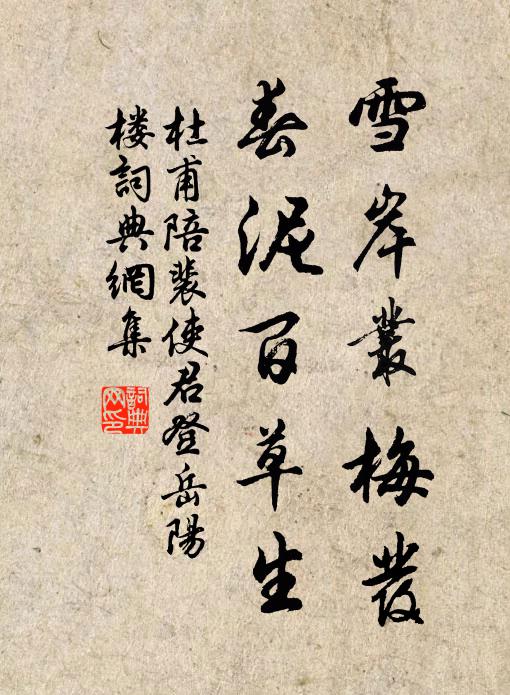 雪岸叢梅發
春泥百草生
杜甫陪裴使君登岳陽
楼詞典網集
詞典网印